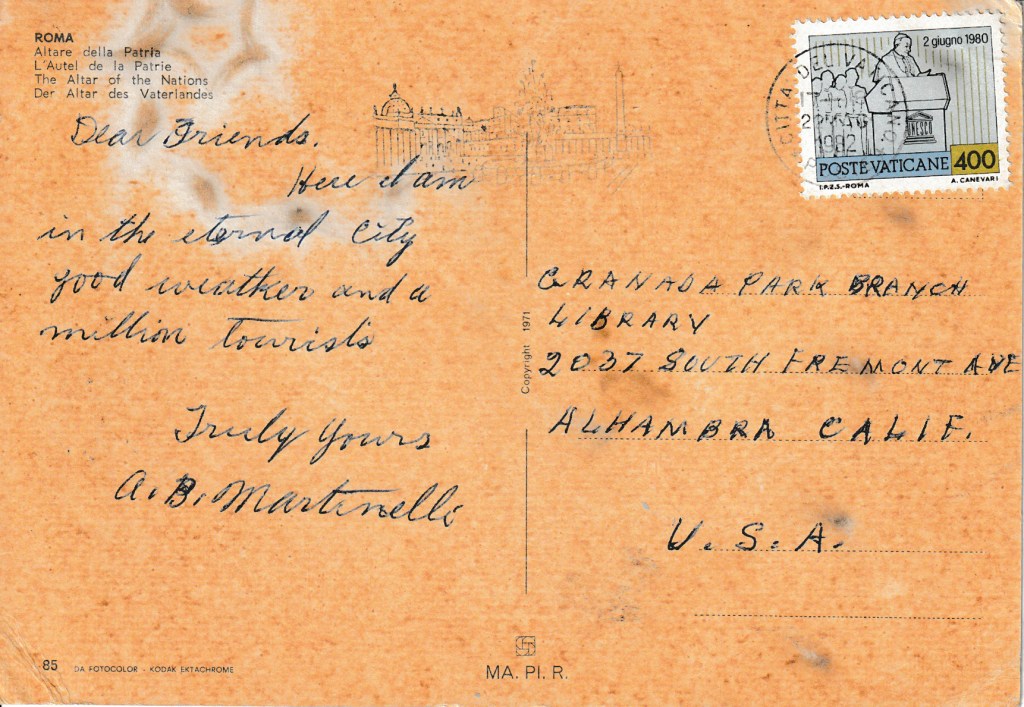 ROMA
Altare della Patria
L'Autel de la Patrie
The Altar of the Nations
Der Altar des Vaterlandes
Dear Friends.
Here I am
in the eternal City
good weather and a
million tourists
Truly Yours
A. B. Martinelli
2 giugno 1980
UNESCO
POSTE VATICANE 400
I.P.Z.S.-ROMA A. CANEVARI
CITTA DEL VATICANO
1982
Copyright 1971
GRANADA PARK BRANCH
LIBRARY
2037 SOUTH FREMONT AVE
ALHAMBRA CALIF.
U.S.A.
85 DA FOTOCOLOR - KODAK EKTACHROME
MA. PI. R.